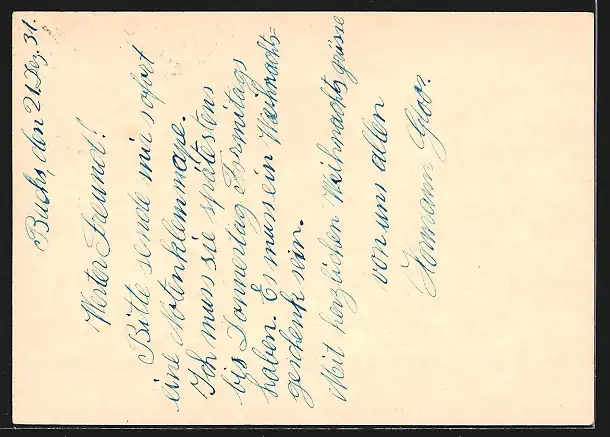 Buchs, den 21 Dez. 31.
Werter Freund!
Bitte sende mir sofort
eine Notenklemmape.
Ich muss sie spätestens
bis Donnertag Formitags
haben. Es muss ein Weihnachts=
geschenk sein.
Mit herzlichen Weihnachts grüsse
von uns allen
Hermann